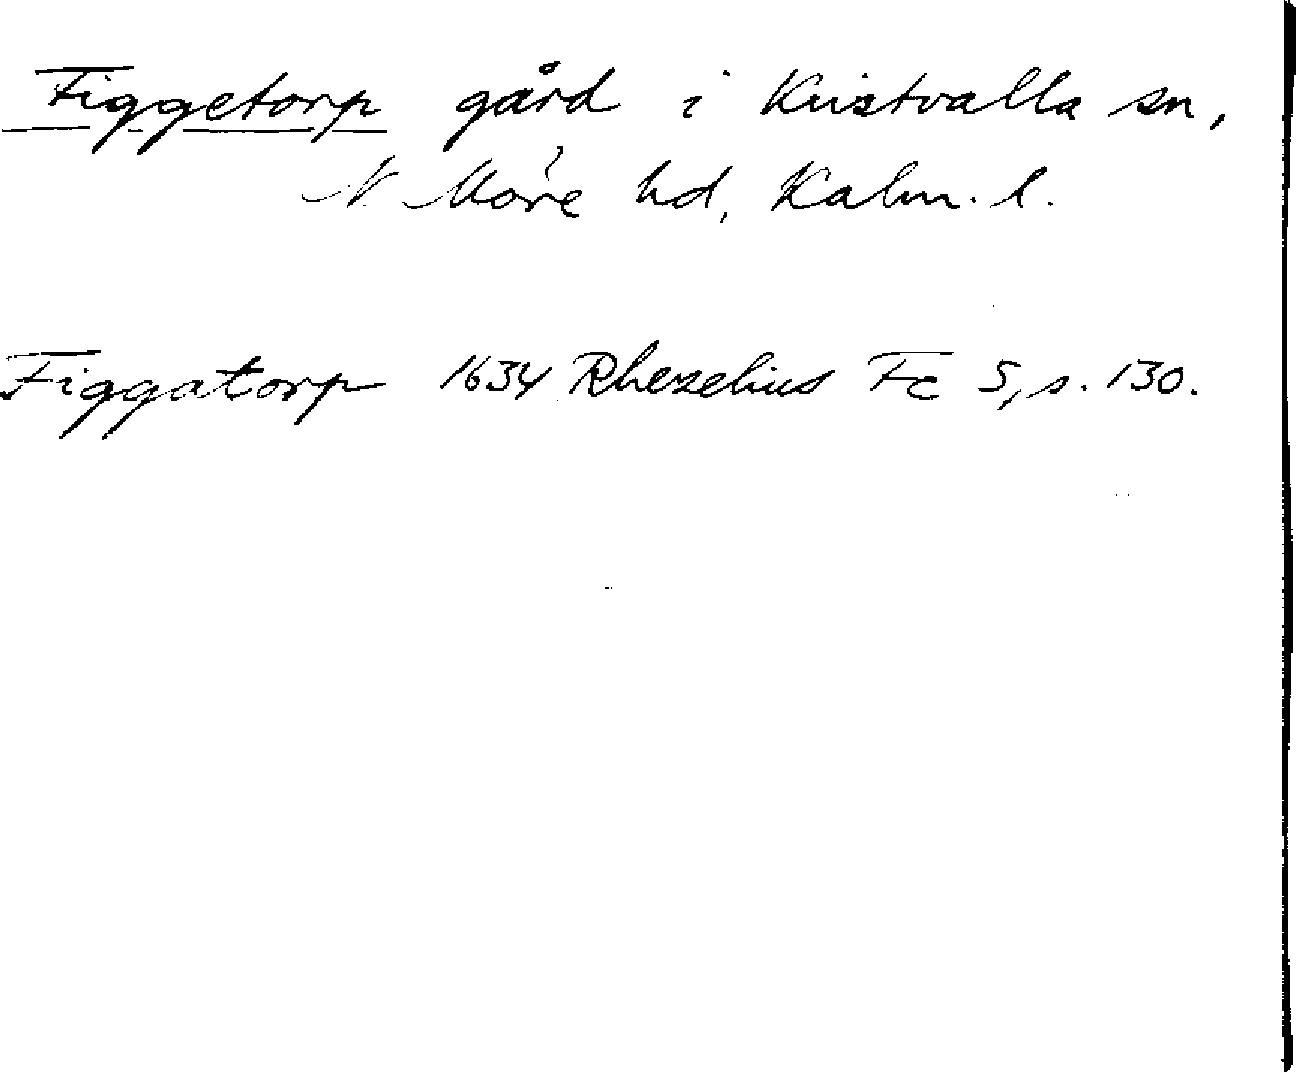 Figgetorp gård i Kristvalla sn,
N. Möre hd, Kalm. l.
Figgatorp 1634 Rhezelius Fc 5, s. 130.